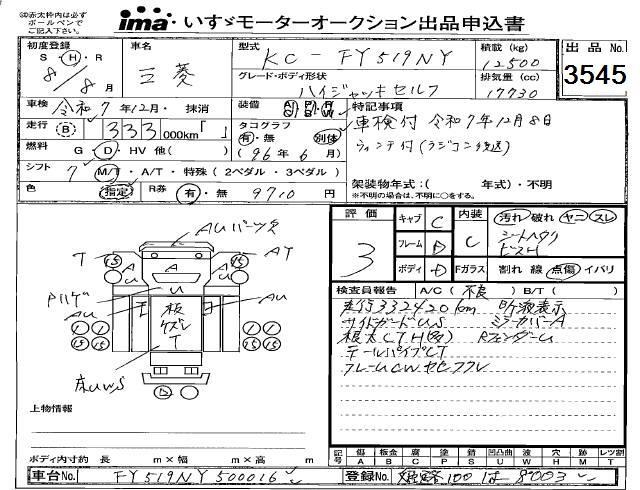 ◎赤太枠内は必ず
ボールペンで
ご記入下さい。
ima いすゞモーターオークション出品申込書
初度登録 S・H・R 8/8月
車名 三菱
型式 KC-FY519NY
積載 (kg) 12500
出品No. 3545
グレード・ボディ形状 ハイジャッキセルフ
排気量 (cc) 17730
車検 令和7年12月・抹消
装備
特記事項
車検付 令和7年12月8日
走行 B 333000km「 」
タコグラフ 有・無 別体
(96年6月)
ウィンチ付(ラジコン後送)
燃料 G・D・HV 他( )
シフト 7 M/T・A/T・特殊(2ペダル・3ペダル)
架装物年式:( 年式)・不明
※不明の場合は、不明に○をする。
色 指定 R券 有・無 9710円
評価 3
キャブ C
フレーム D
ボディ D
内装 C
汚れ 破れ ヤニ スレ
シートヘタリ
ビス穴
Fガラス 割れ 線 点傷 イバリ
検査員報告 A/C(不良) B/T( )
走行332420km
サイドガードUS ミラーカバーA
根太CTH(多) RフェンダーU
テールパイプCT
フレームCW サビフクレ
AUパーツ欠
T 15 A 15 AT
A U A U
U
AU AU
板
T
1 1 1 1
15 15 15 15
床UWS
D
上物情報
ボディ内寸約 長 m×幅 m×高 m
記号 傷A 板金B 腐C 塗P 錆S 凹凸U 曲W 穴H 跡M レンズ割T
車台No. FY519NY500016
登録No. 姫路100は8003